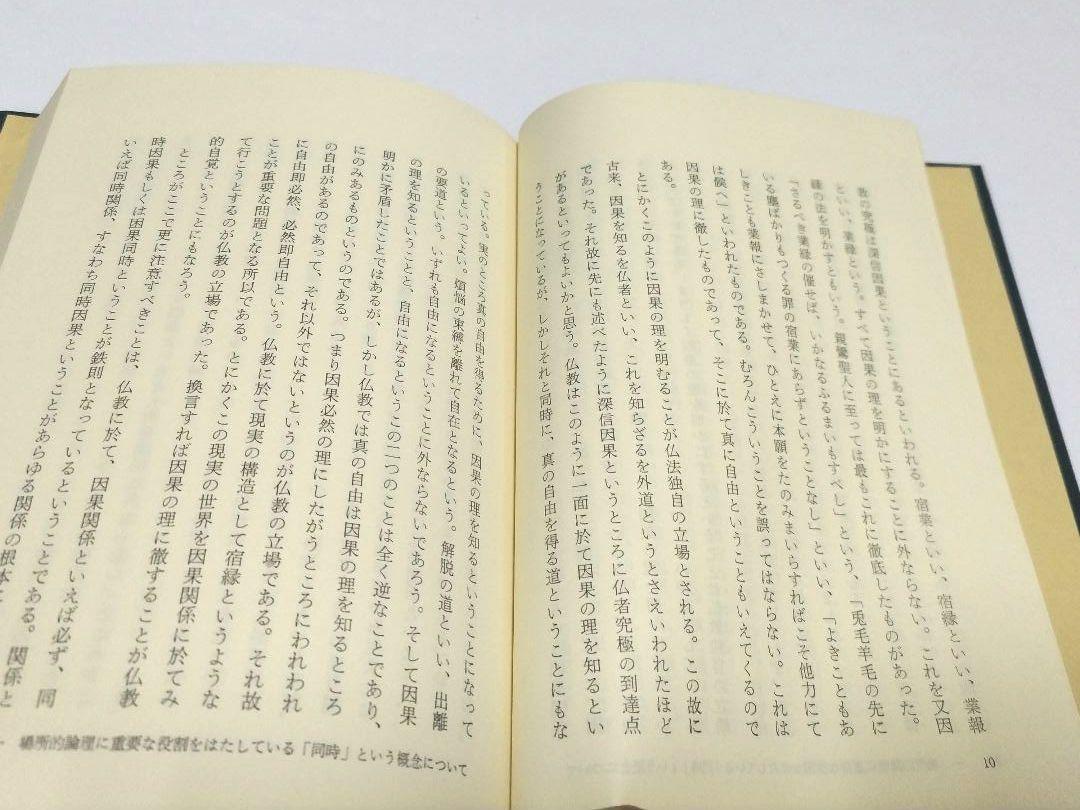 教の究極は深信因果ということにあるといわれる。宿業といい、宿縁といい、業報
といい、業縁という。すべて因果の理を明かにすることに外ならない。これを又因
縁の法を明かすともいう。親鸞聖人に至っては最もこれに徹底したものがあった。
「さるべき業縁の催せば、いかなるふるまいもすべし」という、「兎毛羊毛の先に
いる塵ばかりもつくる罪の宿業にあらずということなし」といい、「よきこともあ
しきことも業報にさしまかせて、ひとえに本願をたのみまいらすればこそ他力にて
は候へ」といわれたものである。むろんこういうことを誤ってはならない。これは
因果の理に徹したものであって、そこに於て真に自由ということもいえてくるので
ある。
とにかくこのように因果の理を明むることが仏法独自の立場とされる。この故に
古来、因果を知るを仏者といい、これを知らざるを外道というとさえいわれたほど
であった。それ故に先にも述べたように深信因果というところに仏者究極の到達点
があるといってもよいかと思う。仏教はこのように一面に於て因果の理を知るとい
うことになっているが、しかしそれと同時に、真の自由を得る道ということにもな
10
っている。実のところ真の自由を得るために、因果の理を知るということになって
いるといってよい。煩悩の束縛を離れて自在となるという。解脱の道といい、出離
の要道という。いずれも自由になるということに外ならないであろう。そして因果
の理を知るということと、自由になるというこの二つのことは全く逆なことであり、
明かに矛盾したことではあるが、しかし仏教では真の自由は因果の理を知るところ
にのみあるものというのである。つまり因果必然の理にしたがうところにわれわれ
の自由があるのであって、それ以外ではないというのが仏教の立場である。それ故
に自由即必然、必然即自由という。仏教に於て現実の構造として宿縁というような
ことが重要な問題となる所以である。とにかくこの現実の世界を因果関係に於てみ
て行こうとするのが仏教の立場であった。換言すれば因果の理に徹することが仏教
的自覚ということにもなろう。
ところがここで更に注意すべきことは、仏教に於て、因果関係といえば必ず、同
時因果もしくは因果同時ということが鉄則となっているということである。関係と
いえば同時関係、すなわち同時因果ということがあらゆる関係の根本に
一 場所的論理に重要な役割をはたしている「同時」という概念について